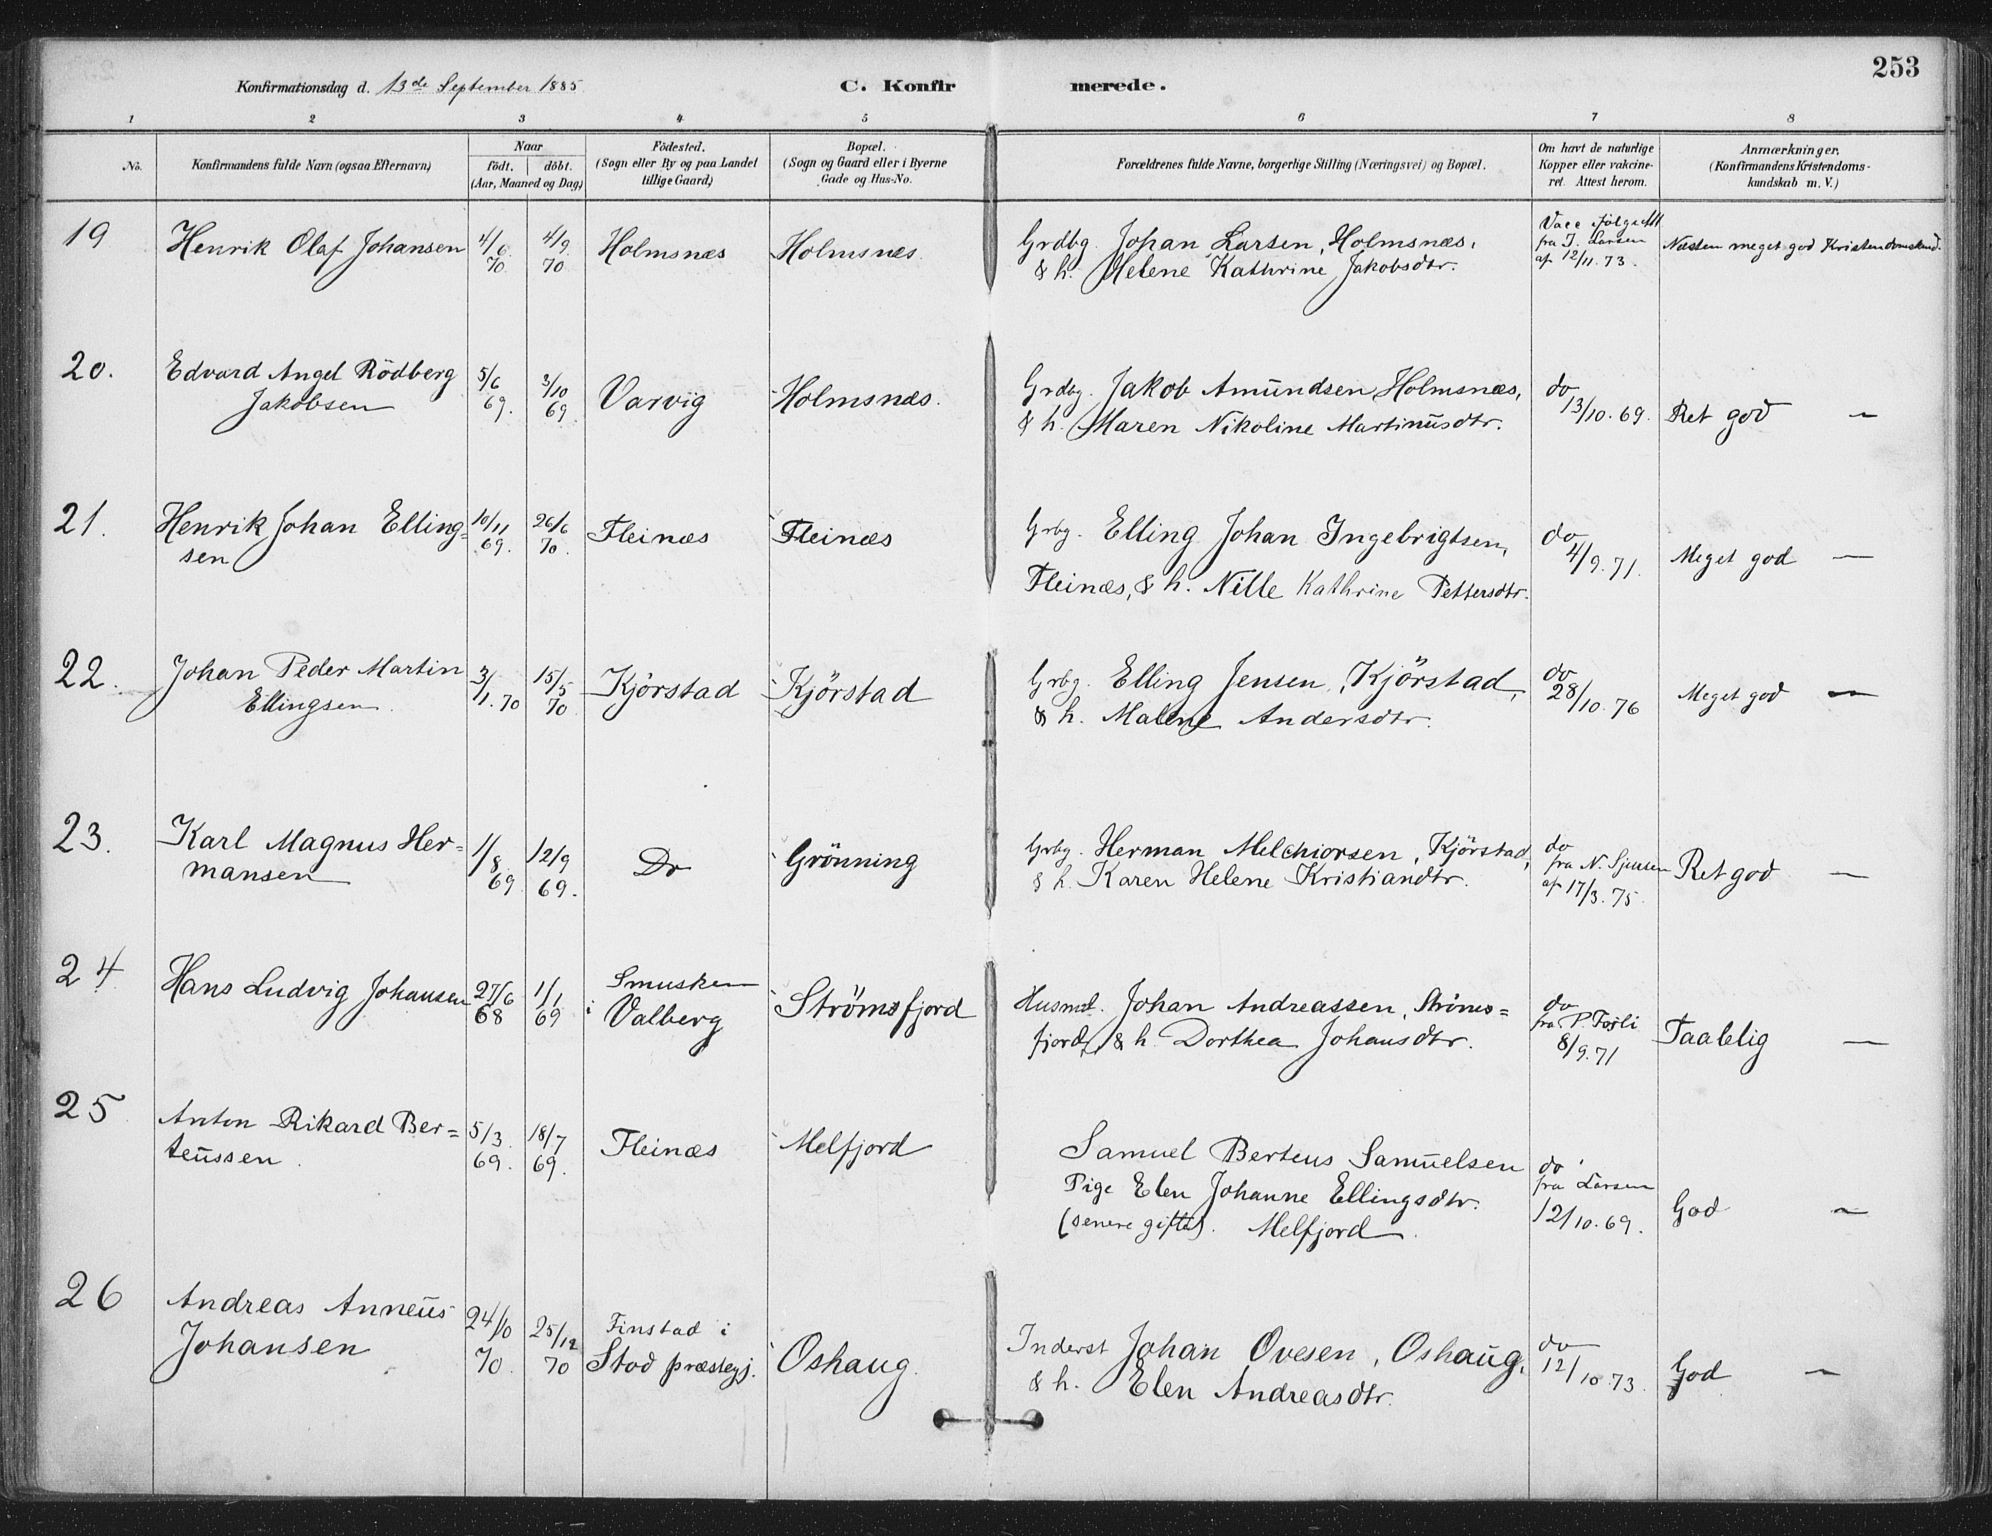 253
Konfirmationsdag d. 13de September 1885
C. Konfirmerede.
1 2 3 4 5 6 7 8
No.
Konfirmandens fulde Navn (ogsaa Efternavn)
Naar
födt. döbt.
(Aar, Maaned og Dag)
Födested.
(Sogn eller By og paa Landet
tillige Gaard)
Bopæl.
(Sogn og Gaard eller i Byerne
Gade og Hus-No.
Forældrenes fulde Navne, borgerlige Stilling (Næringsvei) og Bopæl.
Om havt de naturlige
Kopper eller vakcine-
ret. Attest herom.
Anmærkninger.
(Konfirmandens Kristendoms-
kundskab m. V.)
19 Henrik Olaf Johansen 4/6 70 4/9 70 Holmsnæs Holmsnæs.
Grdbg. Johan Larsen, Holmsnæs,
& h. Helene Kathrine Jakobsdtr.
Vacc ifølge Att
fra J. Larsen
af 12/11.73.
Næsten meget god Kristendomskund.
20. Edvard Angel Rödberg
Jakobsen
5/6 69. 3/10 69 Varvig Holmsnæs.
Grdbg. Jakob Amundsen Holmsnæs,
& h. Maren Nikoline Martinusdtr.
do
13/10.69.
Ret god —
21. Henrik Johan Elling=
sen
10/11 69. 26/6 70. Fleinæs Fleinæs
Grbg. Elling Johan Ingebrigtsen,
Fleinæs, & h. Nille Kathrine Pettersdtr.
do
4/9.71.
Meget god —
22. Johan Peder Martin
Ellingsen.
3/1.70 15/5 70 Kjörstad Kjörstad
Grbg. Elling Jensen, Kjörstad,
& h. Malene Andersdtr.
do
28/10.76
Meget god —
23. Karl Magnus Her=
mansen
1/8 69 12/9 69. Do Grönning
Grbg. Herman Melchiorsen, Kjörstad,
& h. Karen Helene Kristiandtr.
do
fra N. Sjensen
af 17/3.75.
Ret god —
24 Hans Ludvig Johansen 27/6 68 1/1 69 Smusken
i Valberg
Strömsfjord
Husmd. Johan Andreassen, Ströms=
fjord, & h. Dorthea Johansdtr.
do
fra P. Fosli
8/9.71
Taalelig —
25 Anton Rikard Ber=
teussen.
5/3. 69. 18/7 69. Fleinæs Melfjord
Samuel Berteus Samuelsen
Pige Elen Johanne Ellingsdtr.
(senere gifte). Melfjord.
do
fra Larsen
12/10.69.
God —
26 Andreas Anneus
Johansen
24/10 70. 25/12 70 Finstad i
Stod præstegj. Oshaug.
Inderst Johan Ovesen, Oshaug,
& h. Elen Andreasdtr.
do
12/10.73.
God —